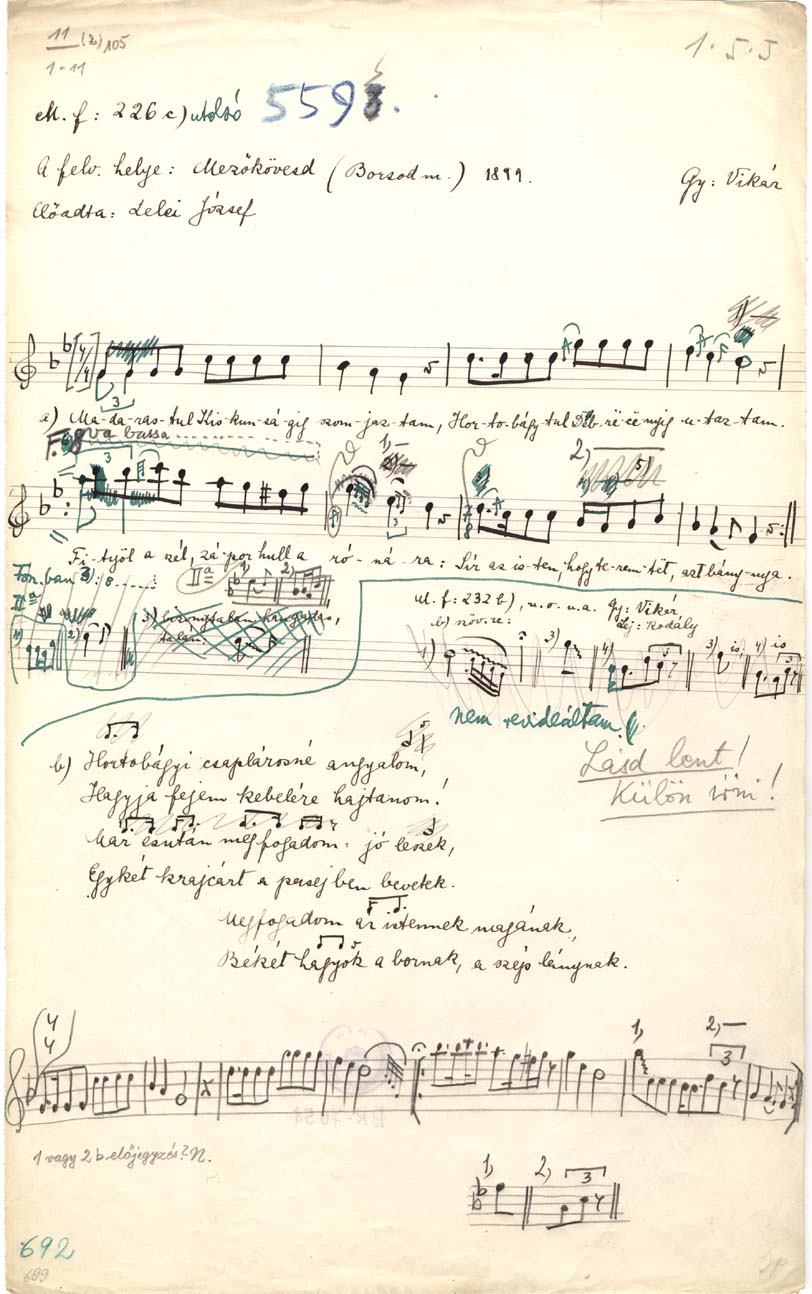 11 (2) 105
1-11
1.5.5
M. f: 226 c) utolsó 559
A felv. helye: Mezőkövesd (Borsod m.) 1899.
Gy: Vikár
Előadta: Lelei József
a) Ma-da-ras-tul Kis-kun-sá-gig szom-jaz-tam, Hor-to-bágy-tul Deb-rë-cë-nyig u-taz-tam.
8va bassa
1,
2)
Fi-työl a szél, zá-por hull a ró-ná-ra: Sír az is-ten, hogy te-rem-tët, azt bány-nya.
Fon.ban 3): 8
IIa
1) 2)
IIa
1) 2)
3) bizonytalan hangadás,
talan.
M. f: 232 b), u.o. u.a. Gy: Vikár,
Lej: Kodály
b) szöv.re:
1) 3) 4) 3) is, 4) is
nem revideáltam.
Lásd lent!
Külön írni!
b) Hortobágyi csaplárosné angyalom,
Hagyja fejem kebelére hajtanom!
Már ezután megfogadom: jó leszek,
Egykét krajcárt a persejben bevetek.
Megfogadom az istennek magának,
Békét hagyok a bornak, a szép lánynak.
4
4
1, 2,
3
1 vagy 2 b előjegyzés? N.
1, 2, 3
692
699